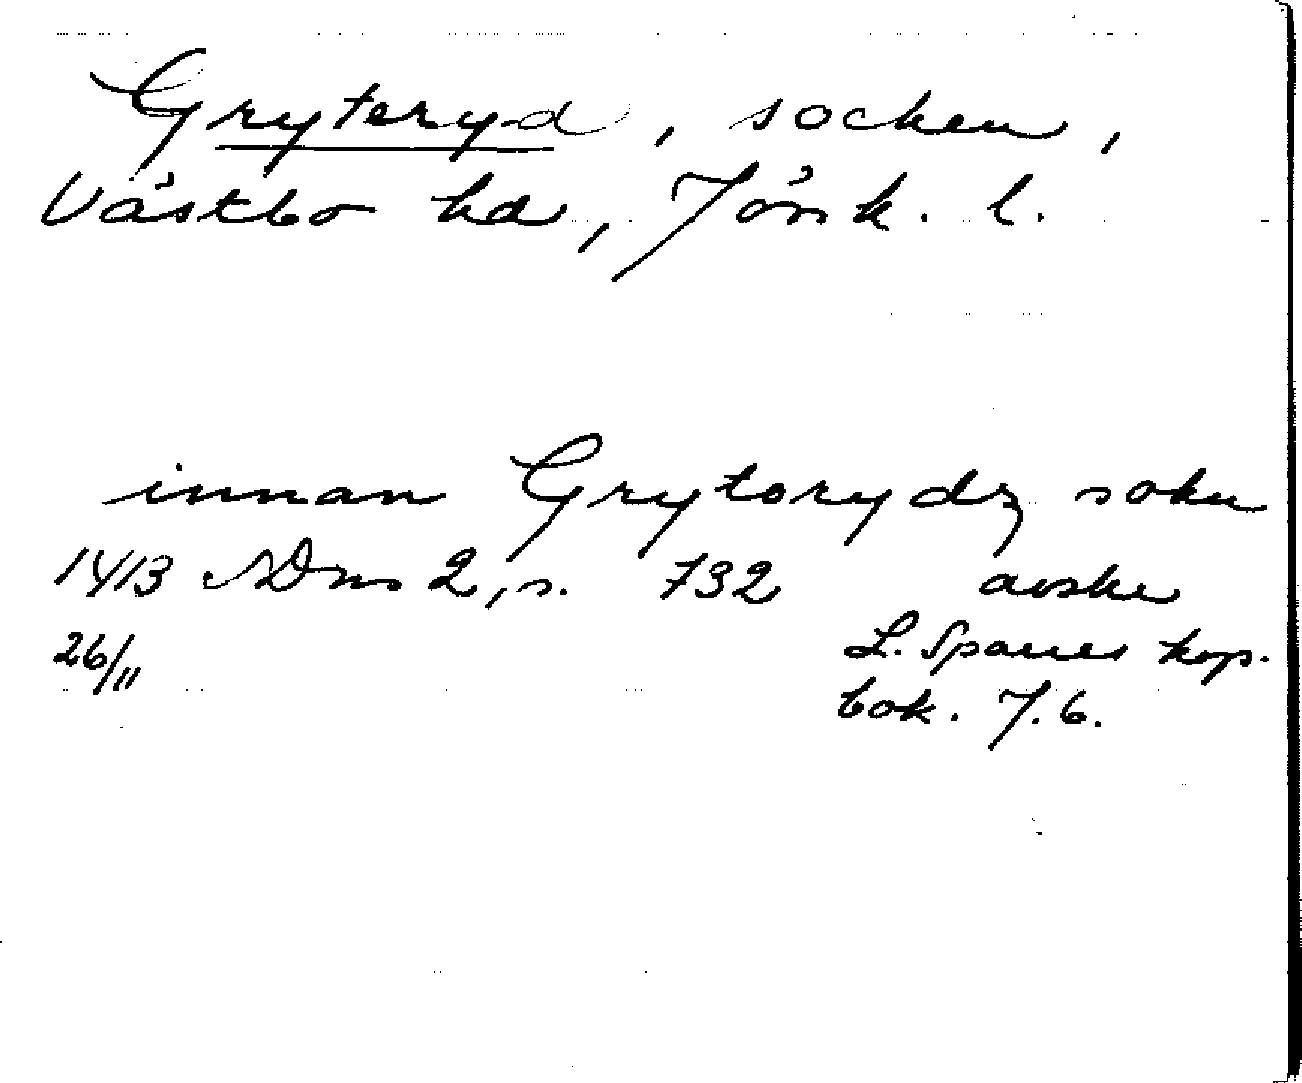 Gryteryd, socken,
Västbo hd, Jönk. l.
innan Grytorydz sokn
1413 SDns 2, s. 732 avskr
26/11 L. Sparres kop.
bok. J. 6.